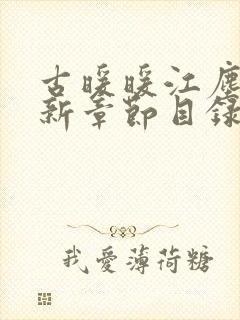 古暖暖江塵
新章節目錄
我愛薄荷糖